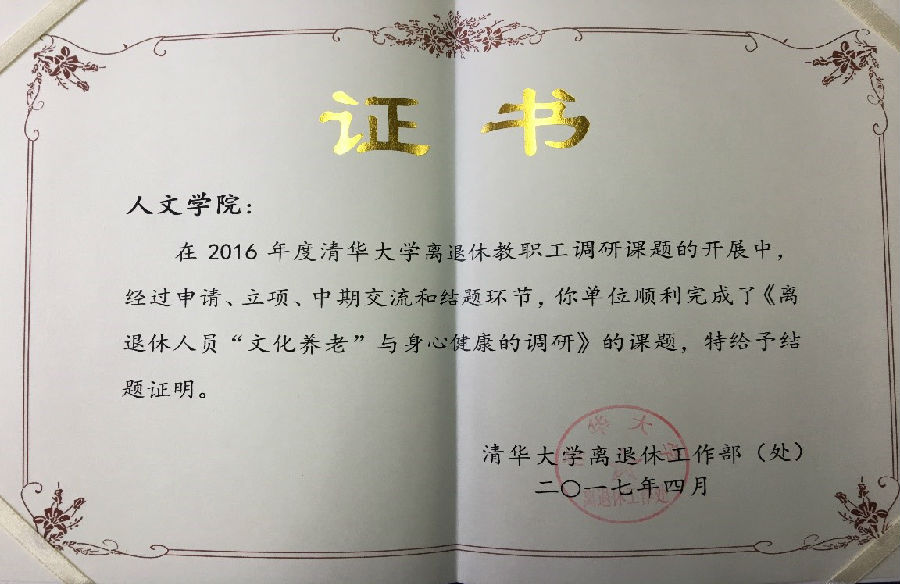 证书
人文学院：
在 2016 年度清华大学离退休教职工调研课题的开展中，
经过申请、立项、中期交流和结题环节，你单位顺利完成了《离
退休人员“文化养老”与身心健康的调研》的课题，特给予结
题证明。
清华大学离退休工作部（处）
二〇一七年四月
离退休工作处